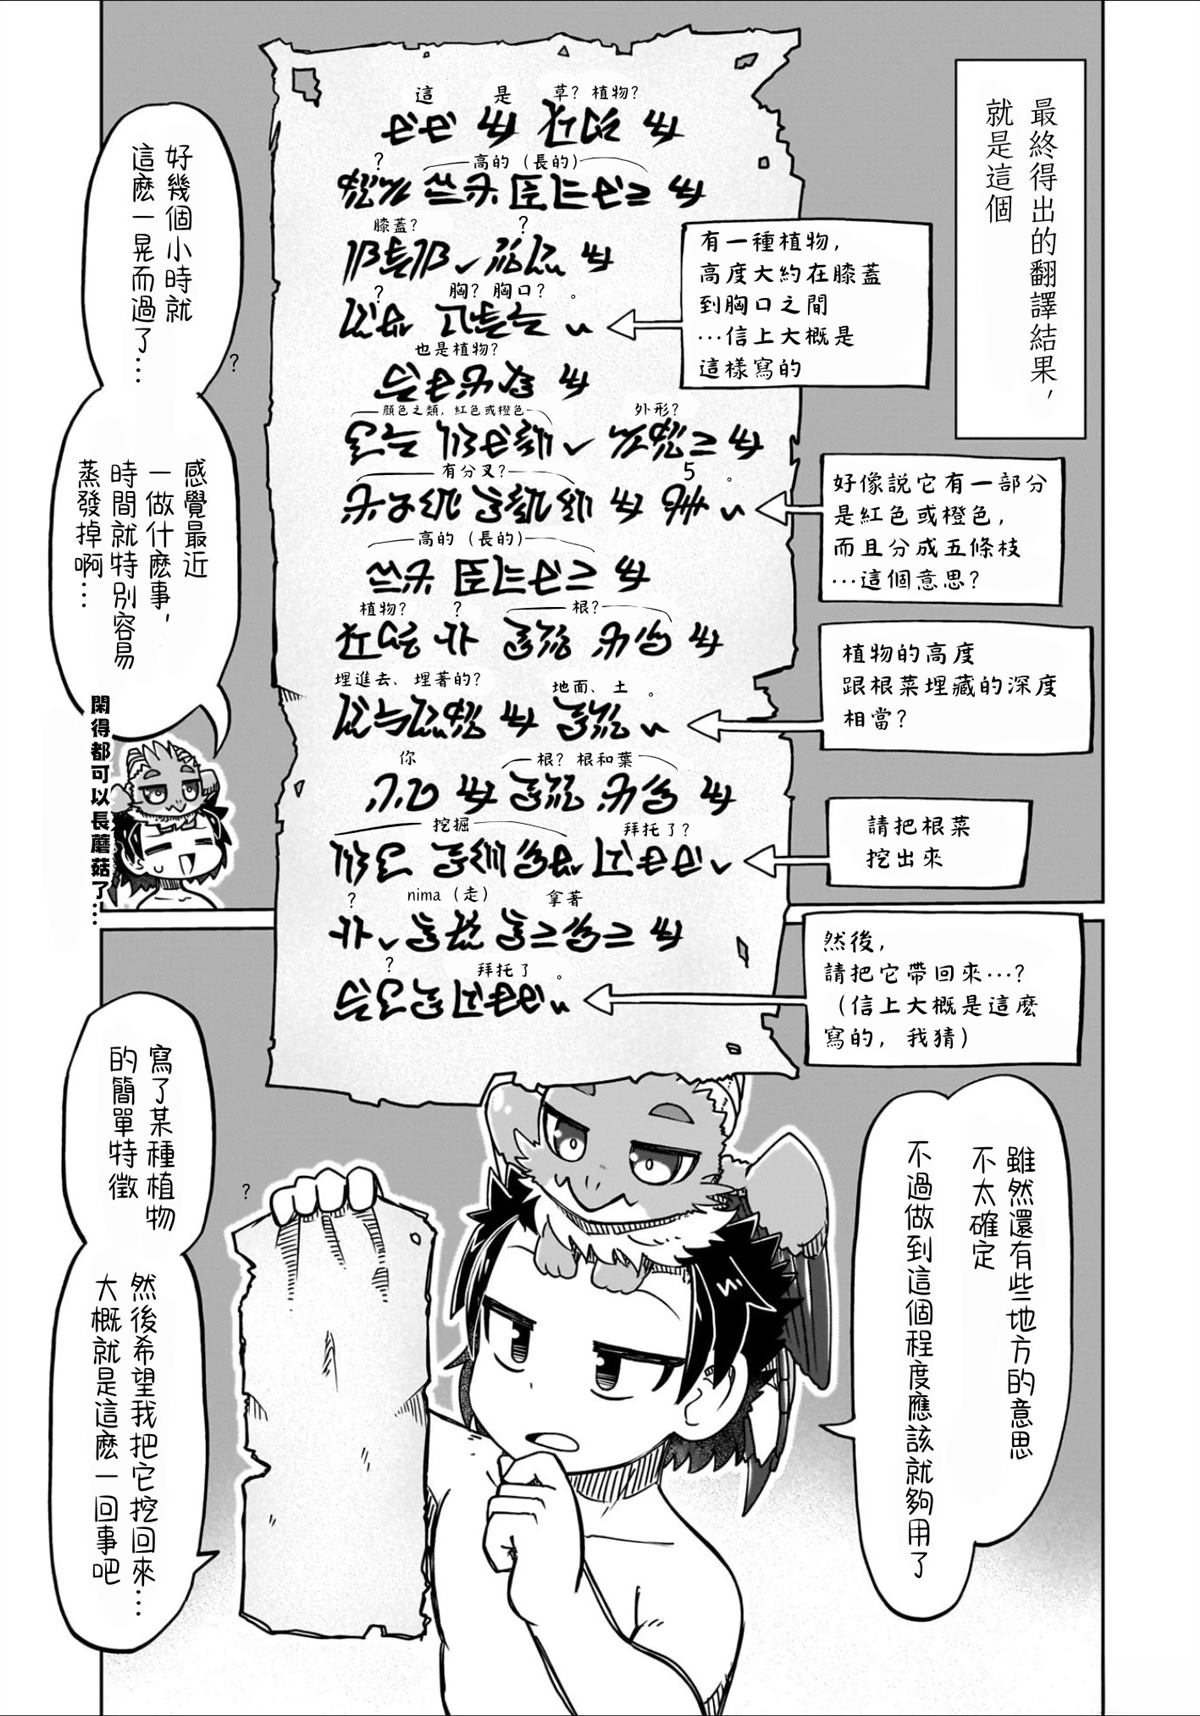 最終得出的翻譯結果，
就是這個
這 是 草？植物？
？ 高的（長的）
膝蓋？ ？
？ 胸？胸口？ 。
也是植物？
顏色之類，紅色或橙色 外形？
有分叉？ 5 。
高的（長的）
植物？ ？ 根？
埋進去、埋著的？ 地面、土 。
你 根？根和葉
挖掘 拜托了？
？ nima（走） 拿著
？ 拜托了 。
有一種植物，
高度大約在膝蓋
到胸口之間
…信上大概是
這樣寫的
好像說它有一部分
是紅色或橙色，
而且分成五條枝
…這個意思？
植物的高度
跟根菜埋藏的深度
相當？
請把根菜
挖出來
然後，
請把它帶回來…？
（信上大概是這麼
寫的，我猜）
好幾個小時就
這麼一晃而過了…
？
感覺最近
一做什麼事，
時間就特別容易
蒸發掉啊…
閑得都可以長蘑菇了…
雖然還有些地方的意思
不太確定
不過做到這個程度應該就夠用了
寫了某種植物
的簡單特徵
？
然後希望我把它挖回來…
大概就是這麼一回事吧